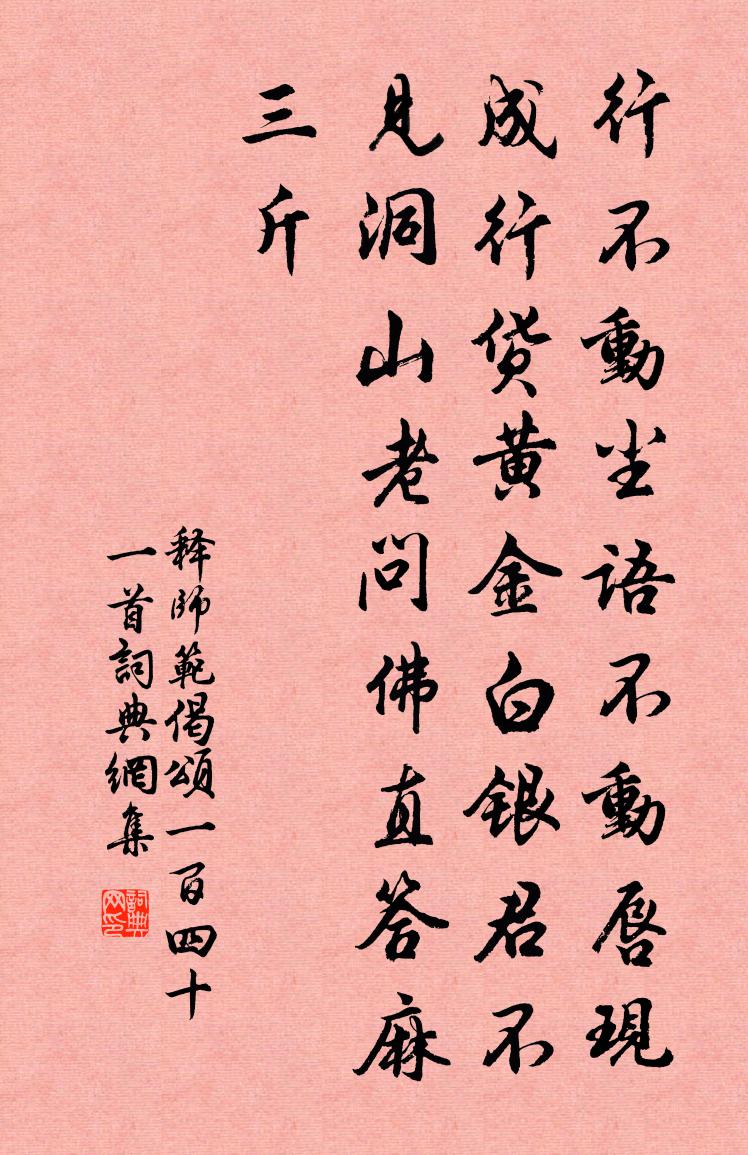 行不動尘語不動唇現
成行货黄金白银君不
見洞山老問佛直答麻
三斤
释師範偈頌一百四十
一首詞典網集
詞典网印